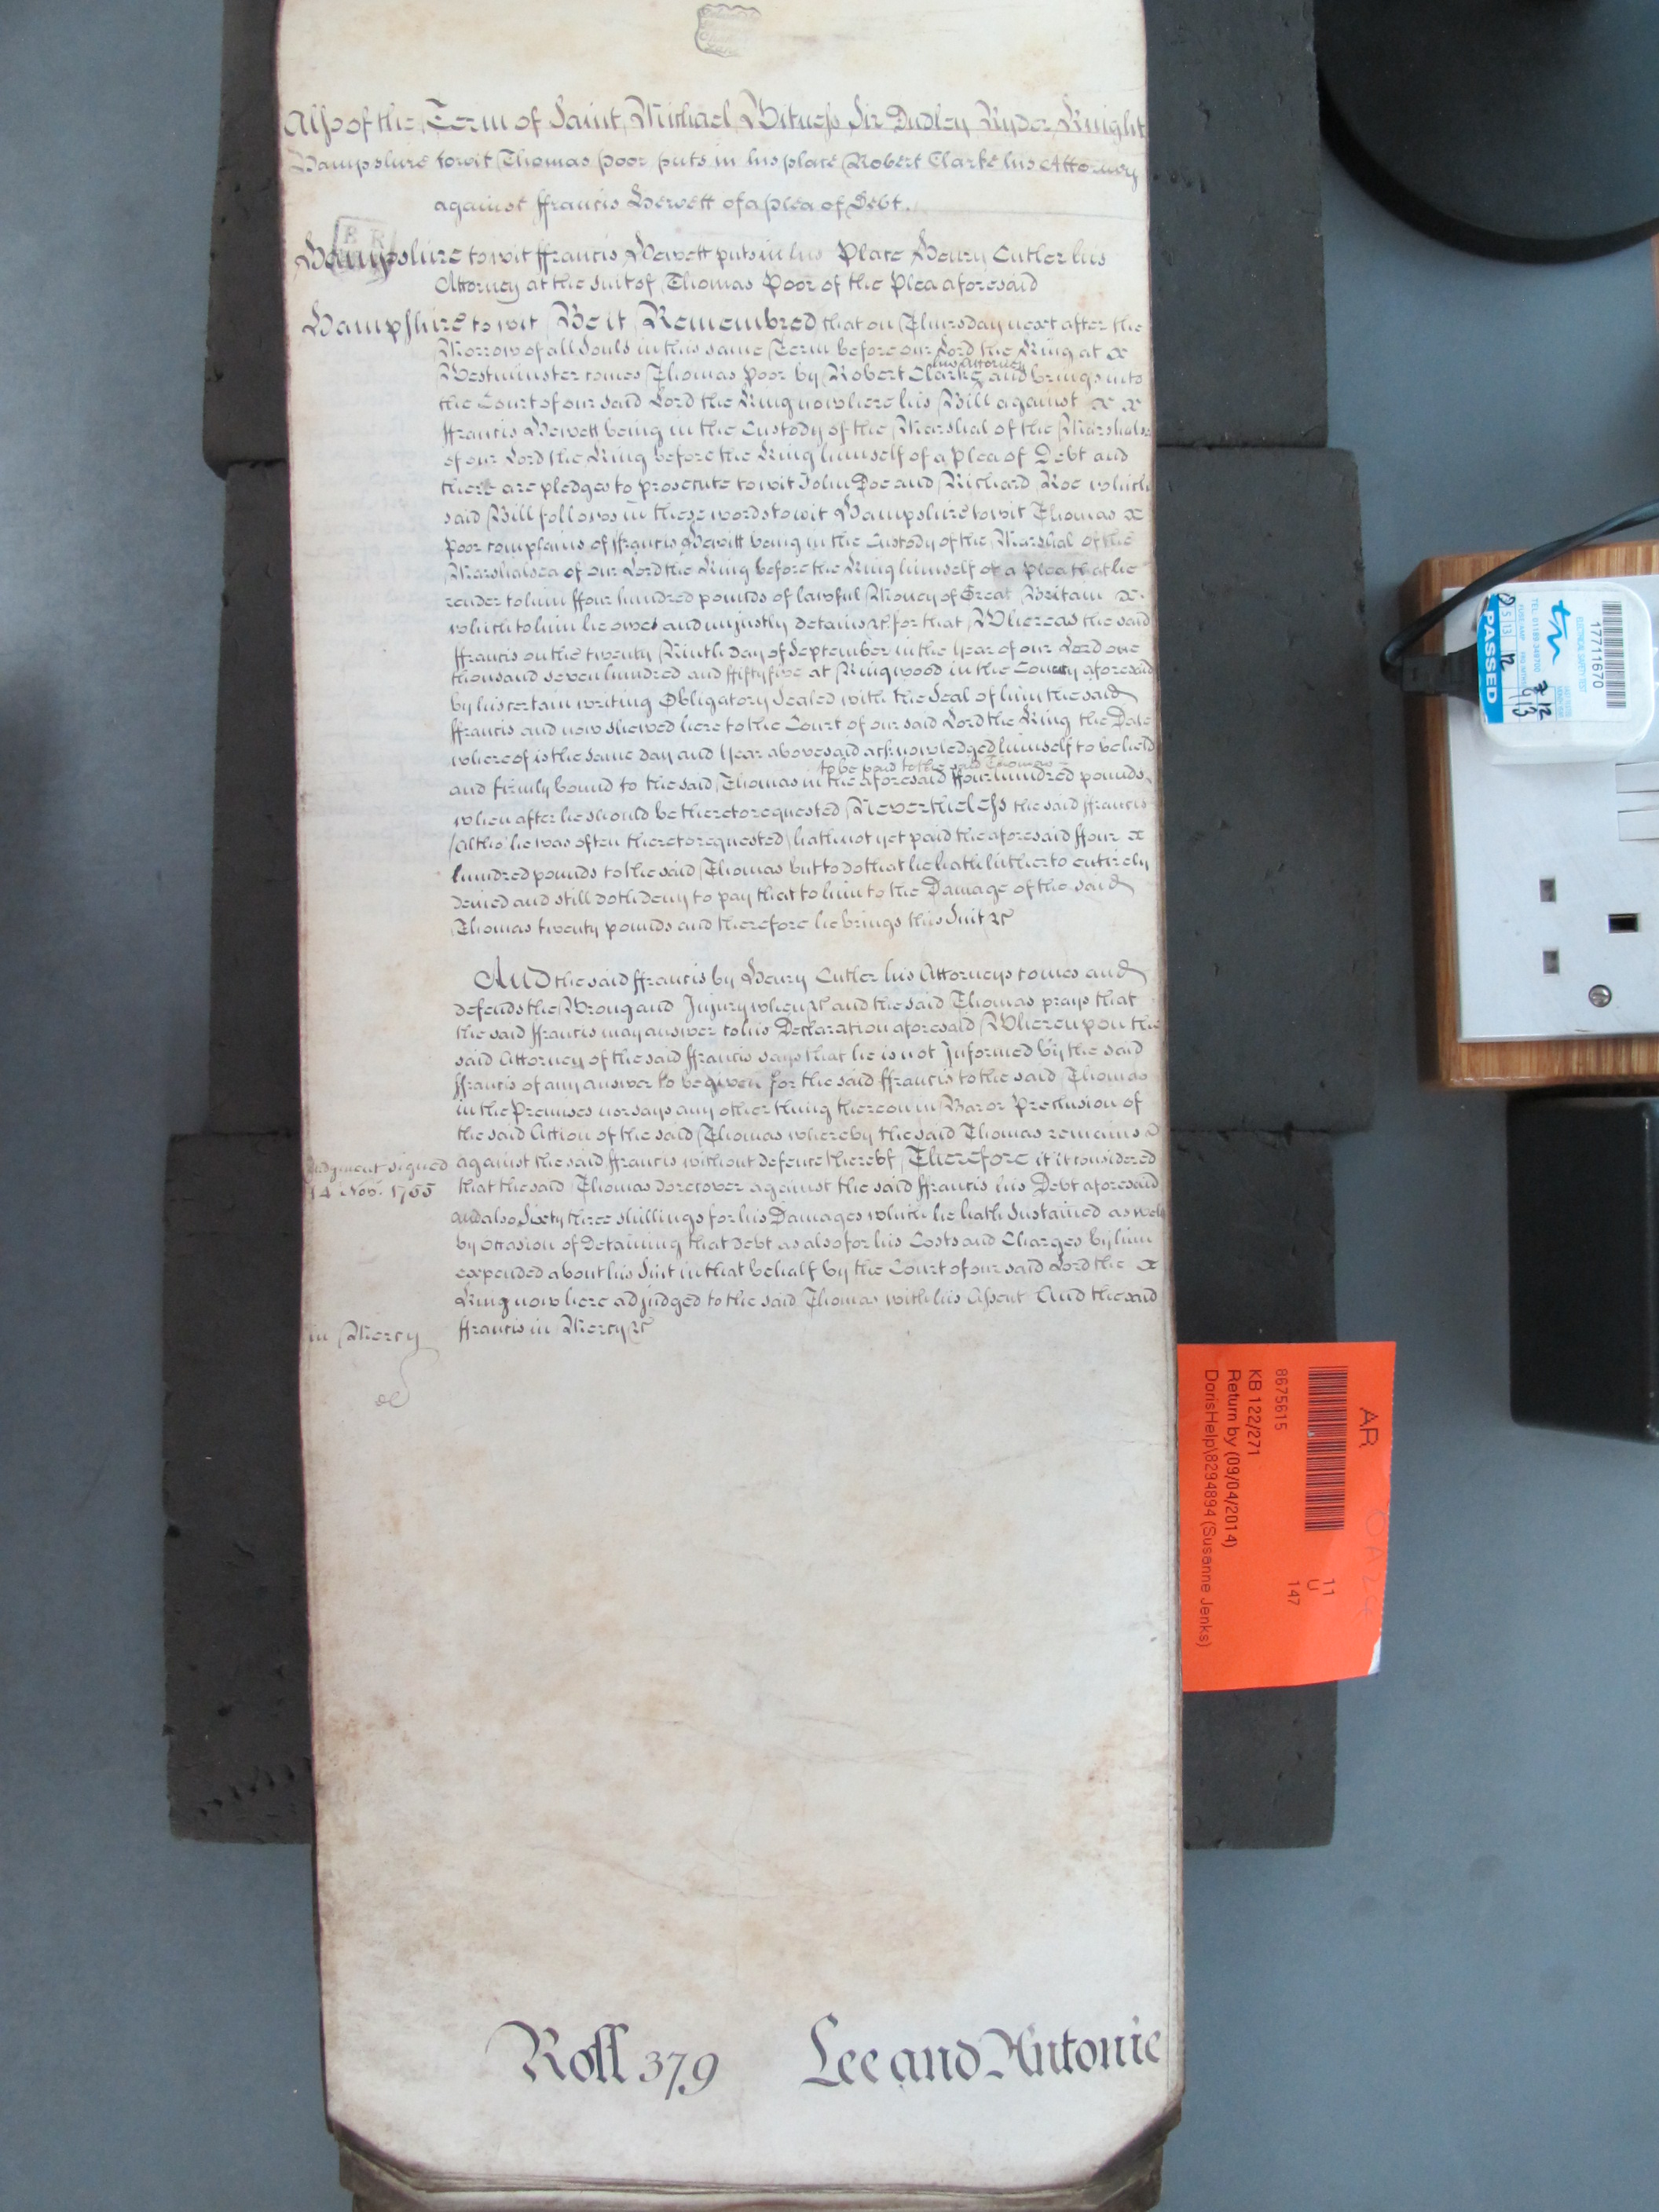 Also of the Term of Saint Michael Witness Sir Dudley Ryder Knight
Hampshire towit Thomas Poor puts in his place Robert Clarke his Attorney
against ffrancis Hewett of a plea of Debt.
Hampshire towit ffrancis Hewett puts in his Place Henry Cutler his
Attorney at the Suit of Thomas Poor of the Plea aforesaid
Hampshire to wit Be it Remembred that on Thursday next after the
Morrow of all Souls in this same Term before our Lord the King at x
Westminster comes Thomas Poor by Robert Clarke his Attorney and brings into
the Court of our said Lord the King now here his Bill against x x
ffrancis Hewett being in the Custody of the Marshal of the Marshalsea
of our Lord the King before the King himself of a plea of Debt and
there are pledges to prosecute towit John Doe and Richard Roe which
said Bill follows in these words towit Hampshire towit Thomas x
Poor complains of ffrancis Hewitt being in the Custody of the Marshal of the
Marshalsea of our Lord the King before the King himself of a plea that he
render to him ffour hundred pounds of lawful Money of Great Britain x.
which to him he owes and unjustly detains &c. for that Whereas the said
ffrancis on the twenty Ninth day of September in the Year of our Lord one
thousand seven hundred and ffiftyfive at Ringwood in the County aforesaid
by his certain writing Obligatory Sealed with the Seal of him the said
ffrancis and now shewed here to the Court of our said Lord the King the Date
whereof is the same day and Year abovesaid acknowledged himself to be held
and firmly bound to the said Thomas in the aforesaid ffour hundred pounds to be paid to the said Thomas
when after he should be thereto requested Nevertheless the said ffrancis
(altho' he was often thereto requested) hath not yet paid the aforesaid ffour x
hundred pounds to the said Thomas but to do that he hath hitherto entirely
denied and still doth deny to pay that to him to the Damage of the said
Thomas twenty pounds and therefore he brings this Suit &c
And the said ffrancis by Henry Cutler his Attorney comes and
defends the Wrong and Injury when &c and the said Thomas prays that
the said ffrancis may answer to his Declaration aforesaid Whereupon the
said Attorney of the said ffrancis says that he is not Informed by the said
ffrancis of any answer to be given for the said ffrancis to the said Thomas
in the Premises nor says any other thing thereon in Bar or Preclusion of
the said Action of the said Thomas whereby the said Thomas remains
Judgment signed
14 Nov. 1755
against the said ffrancis without defence thereof Therefore it it considered
that the said Thomas do recover against the said ffrancis his Debt aforesaid
and also Sixty three shillings for his Damages which he hath Sustained as well
by occasion of Detaining that debt as also for his Costs and Charges by him
expended about his Suit in that behalf by the Court of our said Lord the x
King now here adjudged to the said Thomas with his Assent And the said
in Mercy
ffrancis in Mercy &c
Roll 379 Lee and Antonie
AR
8675615
KB 122/271
Return by (09/04/2014)
DorisHelp\8294894 (Susanne Jenks)
11
U
147
17711670
ELECTRICAL SAFETY TEST
PASSED